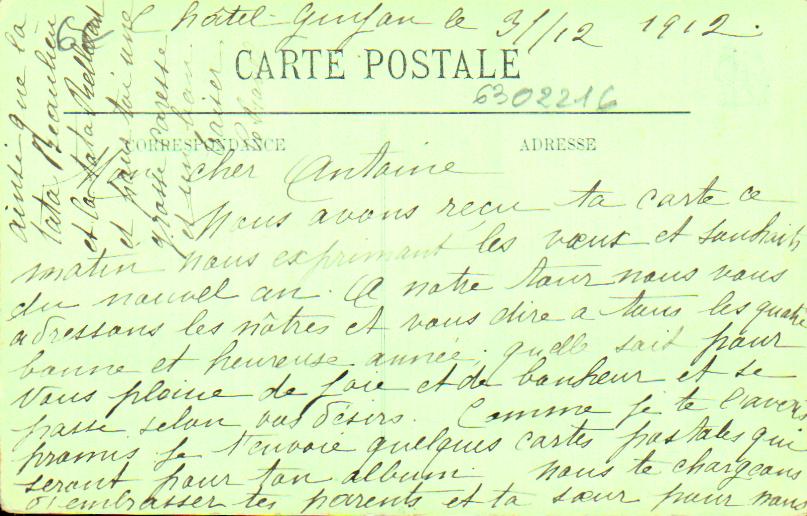 Châtel-Guyon le 31/12 1912.
CARTE POSTALE
6302216
CORRESPONDANCE
ADRESSE
Mon cher Antoine
Nous avons reçu ta carte ce
matin nous exprimant les vœux et souhaits
du nouvel an. A notre tour nous vous
adressons les nôtres et vous dire a tous les quatre
bonne et heureuse année, quelle soit pour
vous pleine de joie et de bonheur et se
passe selon vos désirs. Comme je te l'avais
promis je t'envoie quelques cartes postales qui
seront pour ton album. Nous te chargeons
d'embrasser tes parents et ta sœur pour nous
ainsi que la
tata Beaulieu
et la tata
et pour toi une
grosse caresse
et un bon
baiser